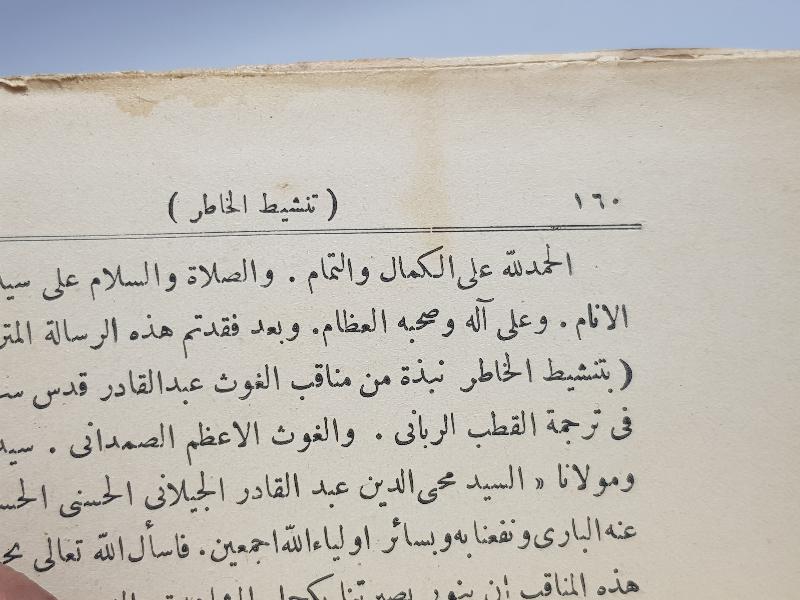 ١٦٠ ( تنشيط الخاطر )
الحمدلله على الكمال والتمام . والصلاة والسلام على
الانام . وعلى آله وصحبه العظام . وبعد فقدتم هذه الرسالة
( بتنشيط الخاطر نبذة من مناقب الغوث عبدالقادر قدس
فى ترجمة القطب الربانى . والغوث الاعظم الصمدانى .
ومولانا « السيد محى الدين عبد القادر الجيلانى الحسنى
عنه البارى ونفعنا به وبسائر اولياء الله اجمعين . فاسأل الله تعالى
هذه المناقب ان ينور بصيرتنا بكحل